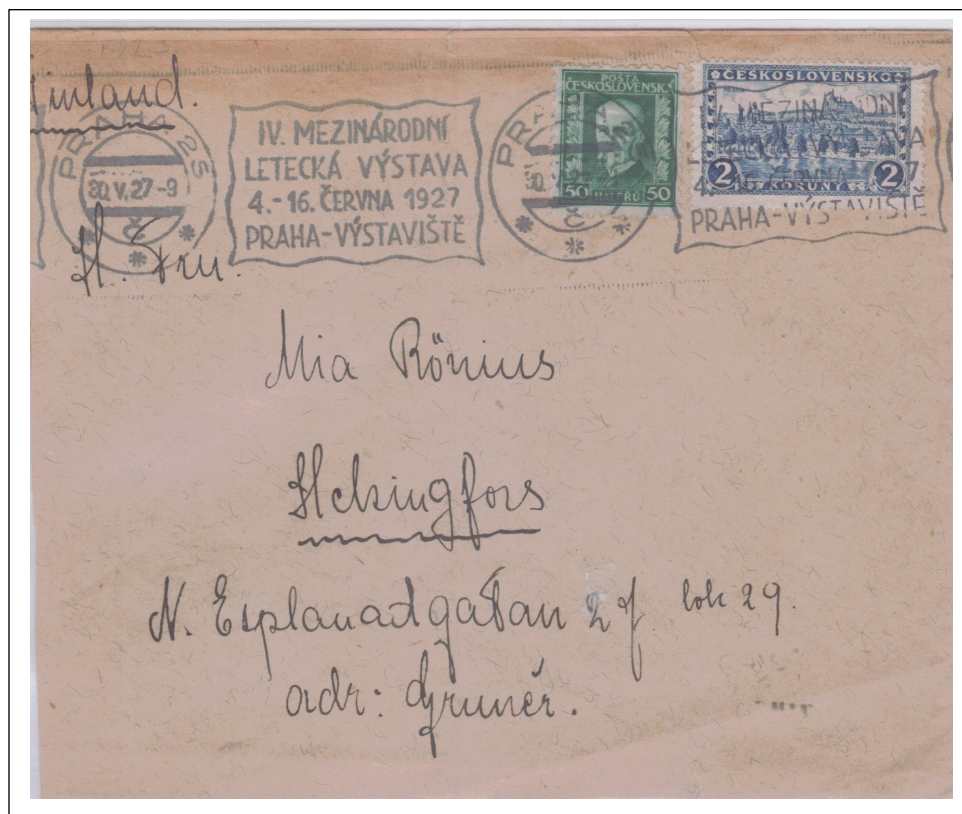 Finland.
PRAHA 25
30.V.27-9
č
IV. MEZINÁRODNÍ
LETECKÁ VÝSTAVA
4.-16. ČERVNA 1927
PRAHA-VÝSTAVIŠTĚ
POŠTA
ČESKOSLOVENSKÁ
50 HALÉŘŮ 50
ČESKOSLOVENSKO
2 KORUNY 2
IV. MEZINÁRODNÍ
LETECKÁ VÝSTAVA
4.-16. ČERVNA 1927
PRAHA-VÝSTAVIŠTĚ
Mia Rönius
Helsingfors
N. Esplanadgatan 27. lok 29.
adr: Grunér.